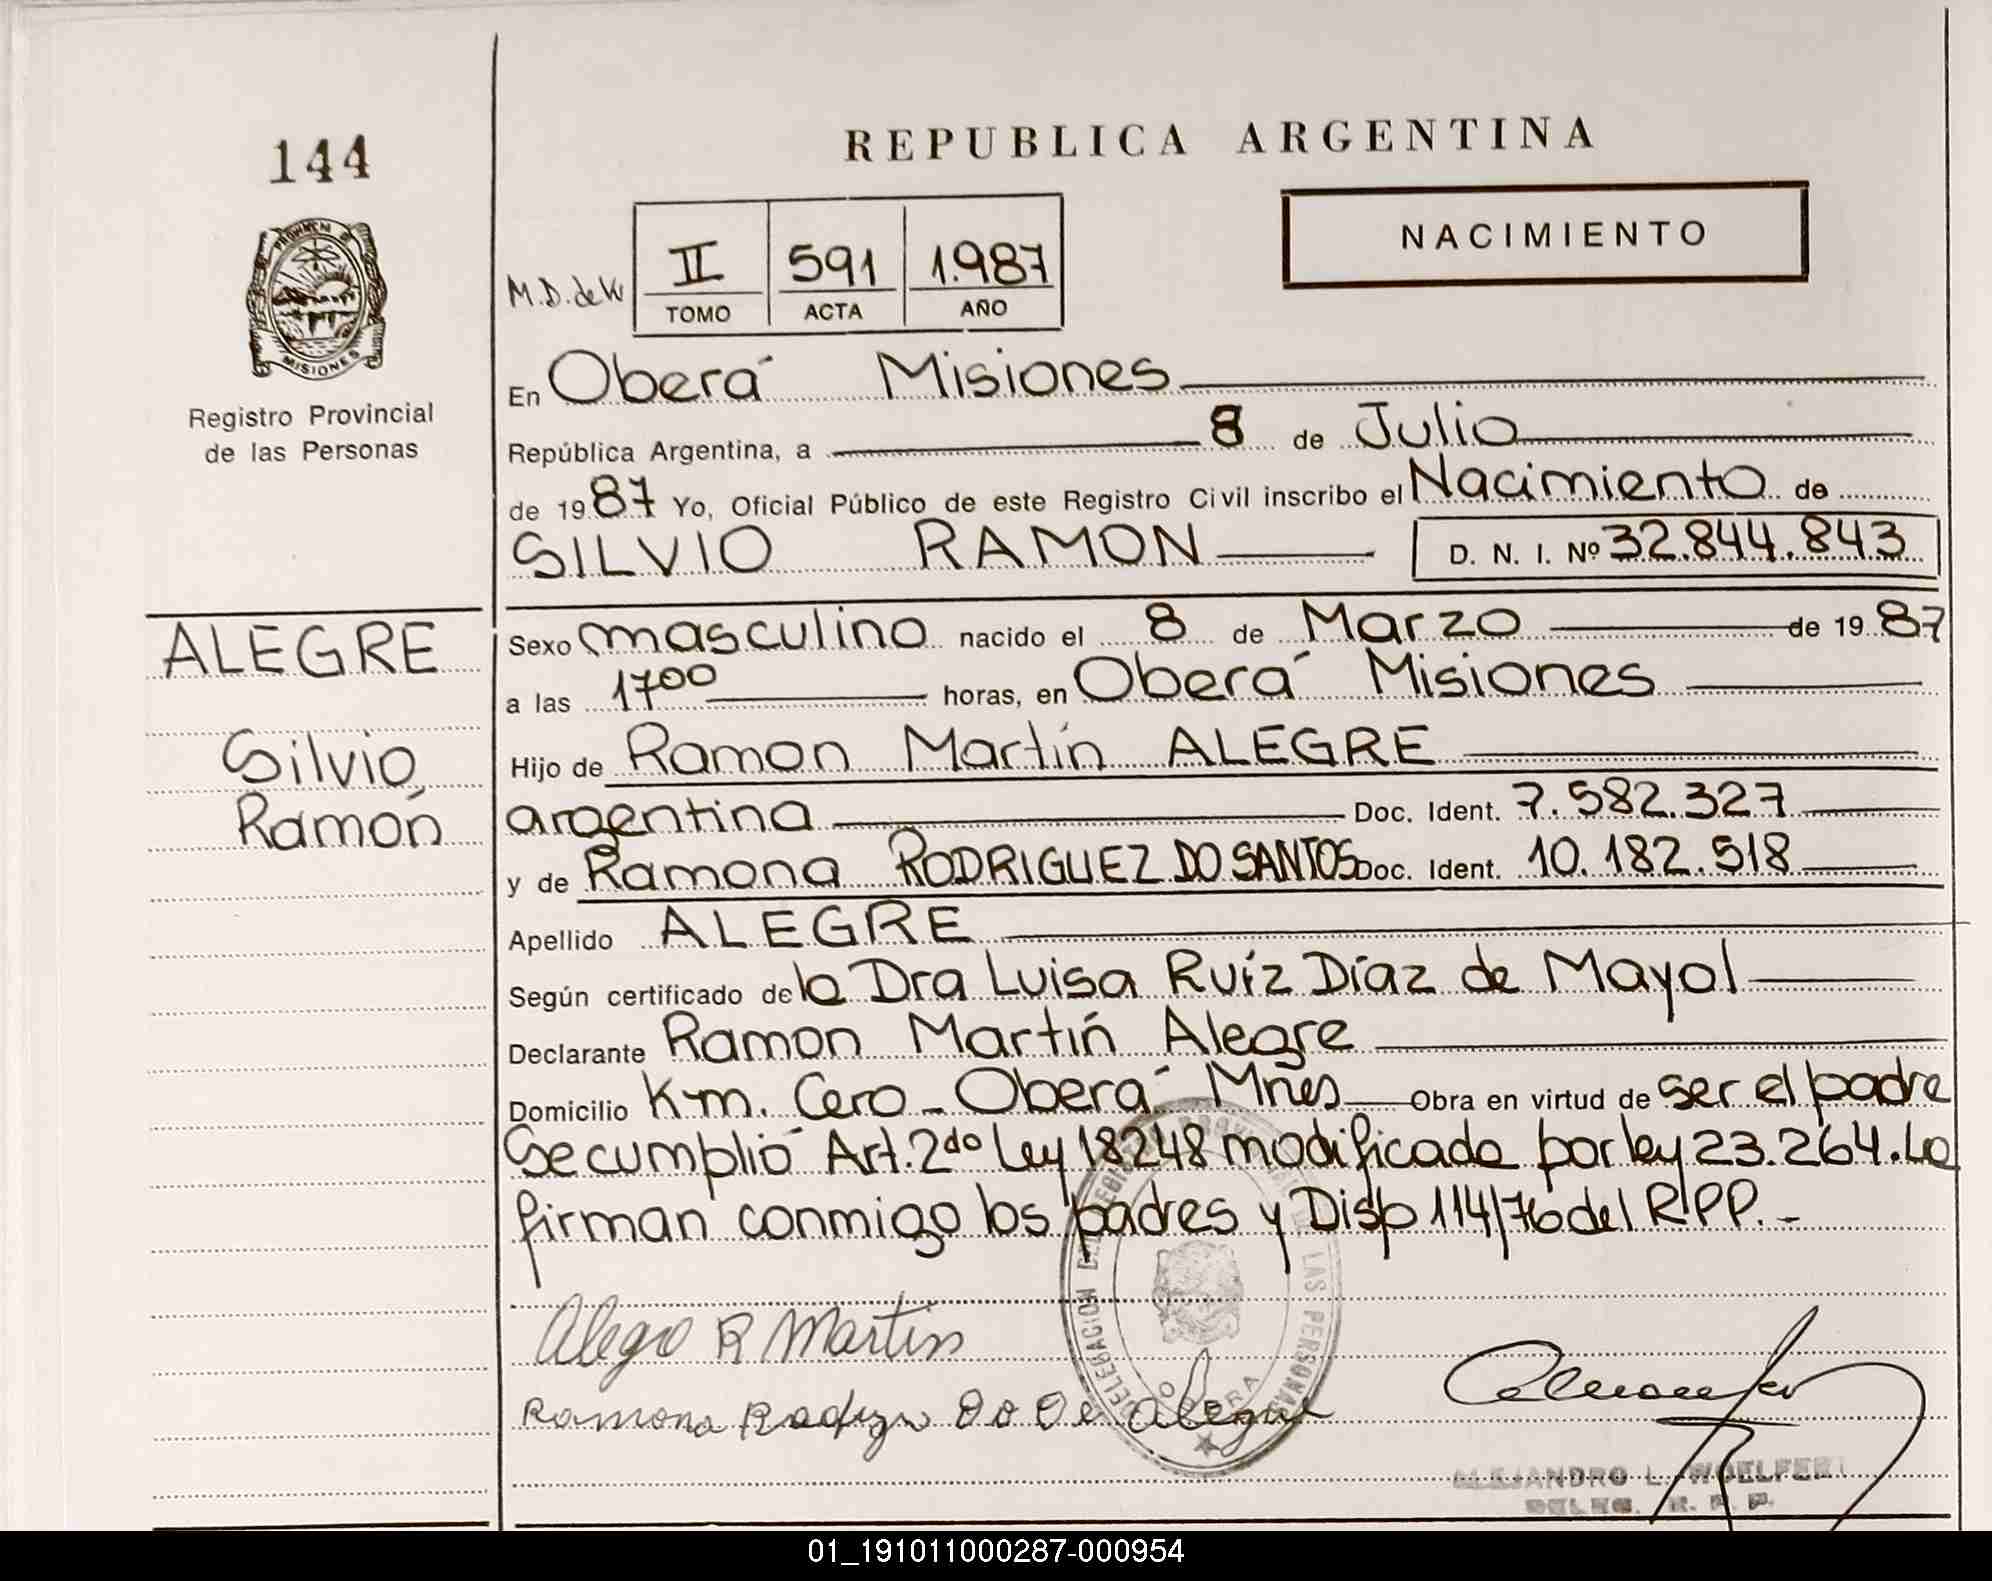 144
REPUBLICA ARGENTINA
NACIMIENTO
PROVINCIA D
MISIONES
M.D. de
II 591 1.987
TOMO ACTA AÑO
Registro Provincial
de las Personas
En Oberá Misiones
República Argentina, a 8 de Julio
de 1987 Yo, Oficial Público de este Registro Civil inscribo el Nacimiento de
SILVIO RAMON D. N. I. Nº 32.844.843
ALEGRE
Silvio
Ramón
Sexo masculino nacido el 8 de Marzo de 1987
a las 1700 horas, en Oberá Misiones
Hijo de Ramon Martín ALEGRE
argentina Doc. Ident. 7.582.327
y de Ramona RODRIGUEZ DO SANTOS Doc. Ident. 10.182.518
Apellido ALEGRE
Según certificado de la Dra Luisa Ruíz Díaz de Mayol
Declarante Ramon Martiń Alegre
Domicilio Km. Cero - Oberá Mnes Obra en virtud de ser el padre
Se cumplió Art. 2do Ley 18248 modificada por ley 23.264. La
firman conmigo los padres y Disp 114/76 del R.P.P. -
DELEGACION DEL REGISTRO PROVINCIAL DE LAS PERSONAS
OBERA
Alegre R Martin
Ramona
ALEJANDRO L. WOELFERT
DELEG. R. P. P.
01_191011000287-000954